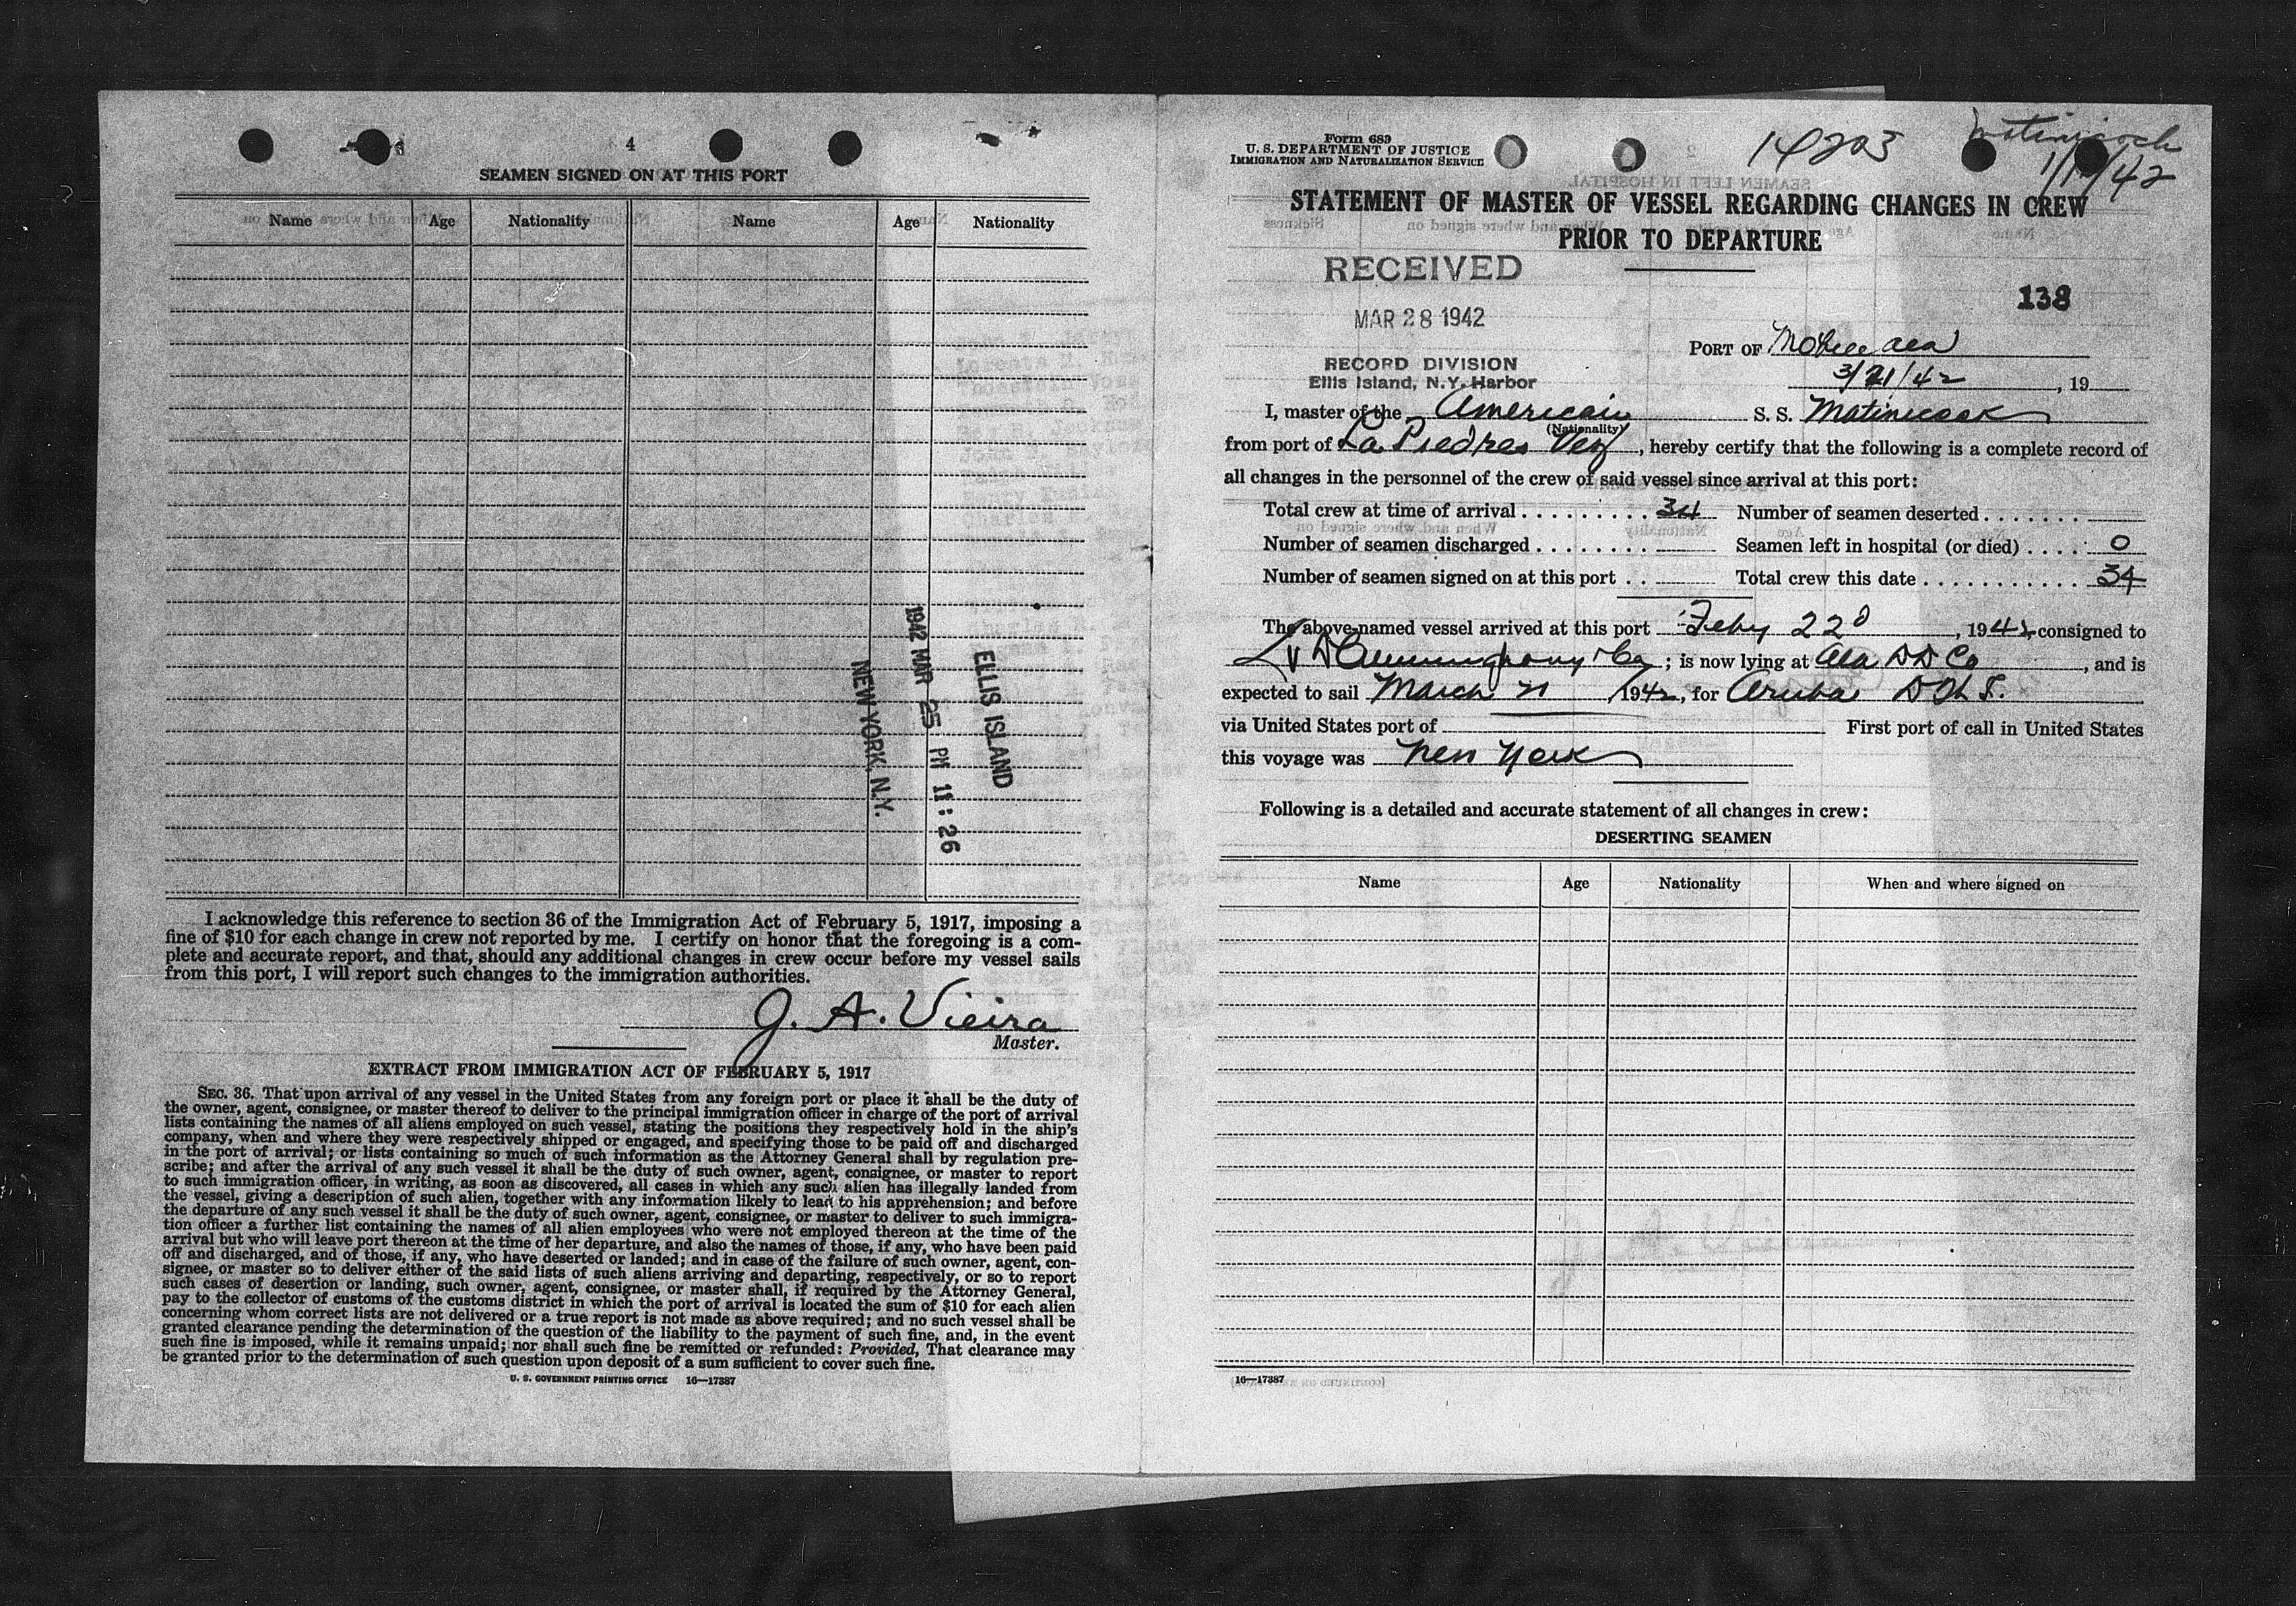 4
SEAMEN SIGNED ON AT THIS PORT
Name Age Nationality Name Age Nationality
ELLIS ISLAND
1942 MAR 25 PM 11:26
NEW YORK, N.Y.
I acknowledge this reference to section 36 of the Immigration Act of February 5, 1917, imposing a
fine of $10 for each change in crew not reported by me. I certify on honor that the foregoing is a com-
plete and accurate report, and that, should any additional changes in crew occur before my vessel sails
from this port, I will report such changes to the immigration authorities.
J. A. Vieira
Master.
EXTRACT FROM IMMIGRATION ACT OF FEBRUARY 5, 1917
SEC. 36. That upon arrival of any vessel in the United States from any foreign port or place it shall be the duty of
the owner, agent, consignee, or master thereof to deliver to the principal immigration officer in charge of the port of arrival
lists containing the names of all aliens employed on such vessel, stating the positions they respectively hold in the ship's
company, when and where they were respectively shipped or engaged, and specifying those to be paid off and discharged
in the port of arrival; or lists containing so much of such information as the Attorney General shall by regulation pre-
scribe; and after the arrival of any such vessel it shall be the duty of such owner, agent, consignee, or master to report
to such immigration officer, in writing, as soon as discovered, all cases in which any such alien has illegally landed from
the vessel, giving a description of such alien, together with any information likely to lead to his apprehension; and before
the departure of any such vessel it shall be the duty of such owner, agent, consignee, or master to deliver to such immigra-
tion officer a further list containing the names of all alien employees who were not employed thereon at the time of the
arrival but who will leave port thereon at the time of her departure, and also the names of those, if any, who have been paid
off and discharged, and of those, if any, who have deserted or landed; and in case of the failure of such owner, agent, con-
signee, or master so to deliver either of the said lists of such aliens arriving and departing, respectively, or so to report
such cases of desertion or landing, such owner, agent, consignee, or master shall, if required by the Attorney General,
pay to the collector of customs of the customs district in which the port of arrival is located the sum of $10 for each alien
concerning whom correct lists are not delivered or a true report is not made as above required; and no such vessel shall be
granted clearance pending the determination of the question of the liability to the payment of such fine, and, in the event
such fine is imposed, while it remains unpaid; nor shall such fine be remitted or refunded: Provided, That clearance may
be granted prior to the determination of such question upon deposit of a sum sufficient to cover such fine.
U. S. GOVERNMENT PRINTING OFFICE 16—17387
Form 689
U. S. DEPARTMENT OF JUSTICE
IMMIGRATION AND NATURALIZATION SERVICE
STATEMENT OF MASTER OF VESSEL REGARDING CHANGES IN CREW
PRIOR TO DEPARTURE
RECEIVED
138
MAR 28 1942
PORT OF Mobile ala
RECORD DIVISION
Ellis Island, N.Y. Harbor
3/21/42, 19
I, master of the American S. S. Matinicock
(Nationality)
from port of La Piedras Ven, hereby certify that the following is a complete record of
all changes in the personnel of the crew of said vessel since arrival at this port:
Total crew at time of arrival 34 Number of seamen deserted
Number of seamen discharged Seamen left in hospital (or died) 0
Number of seamen signed on at this port Total crew this date 34
The above-named vessel arrived at this port Feby 22d, 1942 consigned to
; is now lying at Ala DD Co, and is
expected to sail March 21, 1942, for Aruba
via United States port of First port of call in United States
this voyage was New York
Following is a detailed and accurate statement of all changes in crew:
DESERTING SEAMEN
Name Age Nationality When and where signed on
16—17387